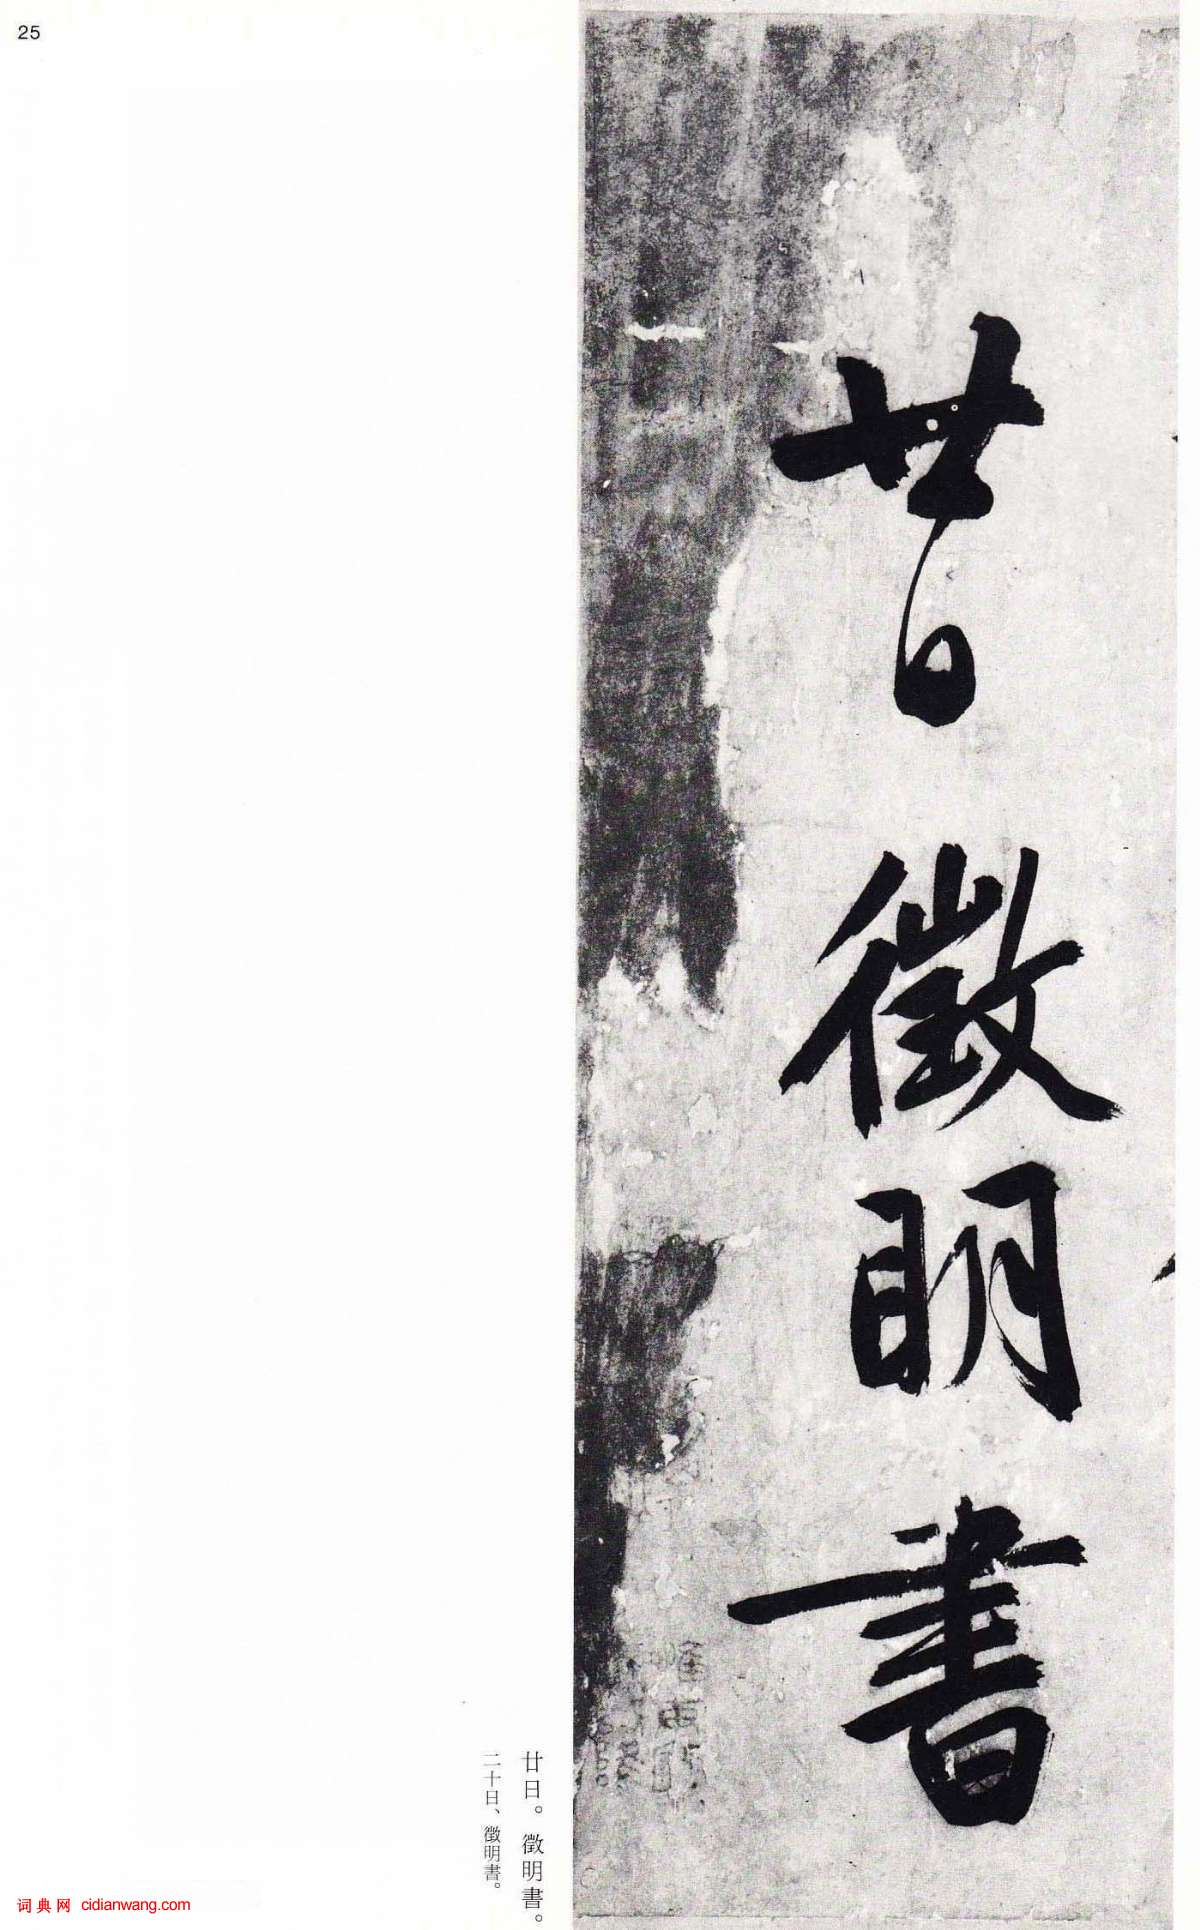 25
廿日徵明書
廿日。徵明書。
二十日、徵明書。
词典网 cidianwang.com